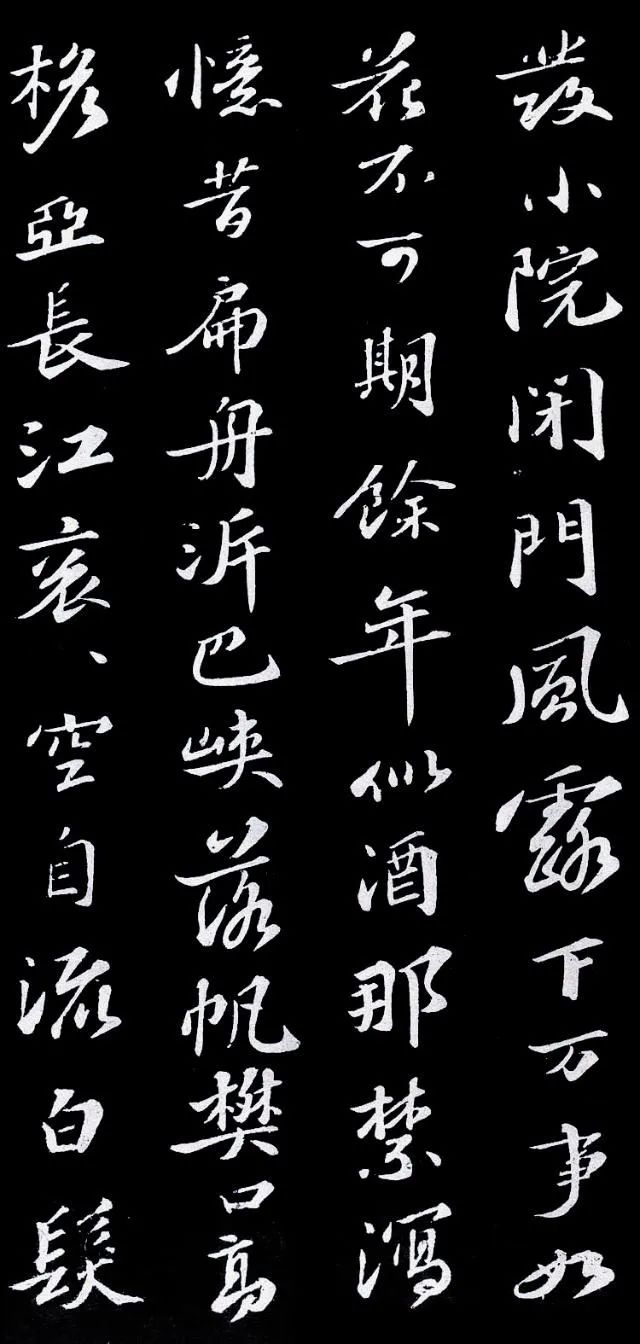 發小院閉門風露下万事如
花不可期餘年似酒那禁瀉
憶昔扁舟泝巴峽落帆樊口高
桅亞長江衮、空自流白髮